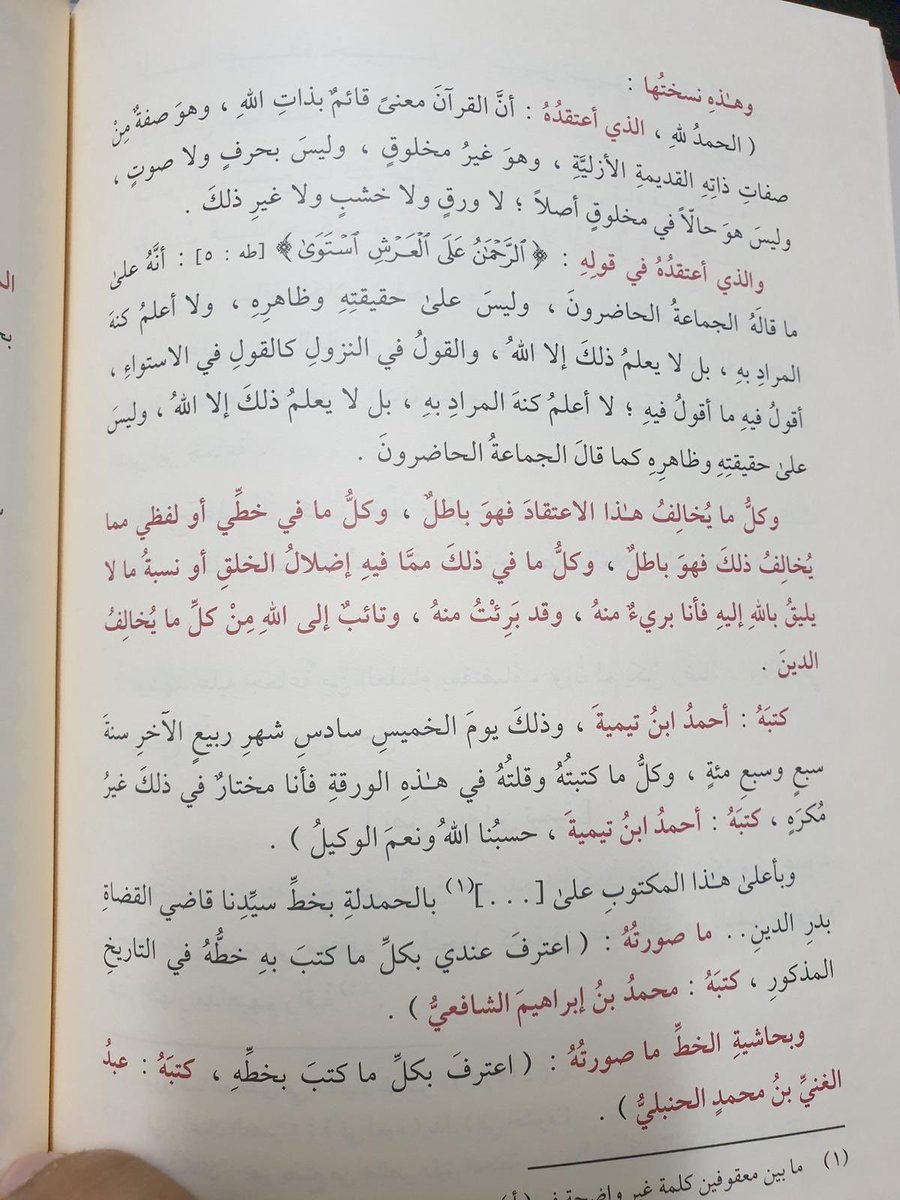 وهـٰذِهِ نسختُها :
( الحمدُ للهِ ، الذي أعتقدُهُ : أنَّ القرآنَ معنىً قائمٌ بذاتِ اللهِ ، وهوَ صفةٌ مِنْ
صفاتِ ذاتِهِ القديمةِ الأزليَّةِ ، وهوَ غيرُ مخلوقٍ ، وليسَ بحرفٍ ولا صوتٍ ،
وليسَ هوَ حالّاً في مخلوقٍ أصلاً ؛ لا ورقٍ ولا خشبٍ ولا غيرِ ذلكَ .
والذي أعتقدُهُ في قولِهِ : ﴿ ٱلرَّحْمَٰنُ عَلَى ٱلْعَرْشِ ٱسْتَوَىٰ ﴾ [طه : ٥] : أنَّهُ علىٰ
ما قالَهُ الجماعةُ الحاضرونَ ، وليسَ علىٰ حقيقتِهِ وظاهرِهِ ، ولا أعلمُ كنهَ
المرادِ بهِ ، بل لا يعلمُ ذلكَ إلا اللهُ ، والقولُ في النزولِ كالقولِ في الاستواءِ ،
أقولُ فيهِ ما أقولُ فيهِ ؛ لا أعلمُ كنهَ المرادِ بهِ ، بل لا يعلمُ ذلكَ إلا اللهُ ، وليسَ
علىٰ حقيقتِهِ وظاهرِهِ كما قالَ الجماعةُ الحاضرونَ .
وكلُّ ما يُخالِفُ هـٰذا الاعتقادَ فهوَ باطلٌ ، وكلُّ ما في خطِّي أو لفظي مما
يُخالِفُ ذلكَ فهوَ باطلٌ ، وكلُّ ما في ذلكَ ممَّا فيهِ إضلالُ الخلقِ أو نسبةُ ما لا
يليقُ باللهِ إليهِ فأنا بريءٌ منهُ ، وقد بَرِئْتُ منهُ ، وتائبٌ إلى اللهِ مِنْ كلِّ ما يُخالِفُ
الدينَ .
كتبَهُ : أحمدُ ابنُ تيميةَ ، وذلكَ يومَ الخميسِ سادسِ شهرِ ربيعٍ الآخرِ سنةَ
سبعٍ وسبعِ مئةٍ ، وكلُّ ما كتبتُهُ وقلتُهُ في هـٰذهِ الورقةِ فأنا مختارٌ في ذلكَ غيرُ
مُكرَهٍ ، كتبَهُ : أحمدُ ابنُ تيميةَ ، حسبُنا اللهُ ونعمَ الوكيلُ ) .
وبأعلىٰ هـٰذا المكتوبِ علىٰ [ . . . ](١) بالحمدلةِ بخطِّ سيِّدِنا قاضي القضاةِ
بدرِ الدينِ . . ما صورتُهُ : ( اعترفَ عندي بكلِّ ما كتبَ بهِ خطُّهُ في التاريخِ
المذكورِ ، كتبَهُ : محمدُ بنُ إبراهيمَ الشافعيُّ ) .
وبحاشيةِ الخطِّ ما صورتُهُ : ( اعترفَ بكلِّ ما كتبَ بخطِّهِ ، كتبَهُ : عبدُ
الغنيِّ بنُ محمدٍ الحنبليُّ ) .
(١) ما بين معقوفين كلمة غير واضحة في ( أ )